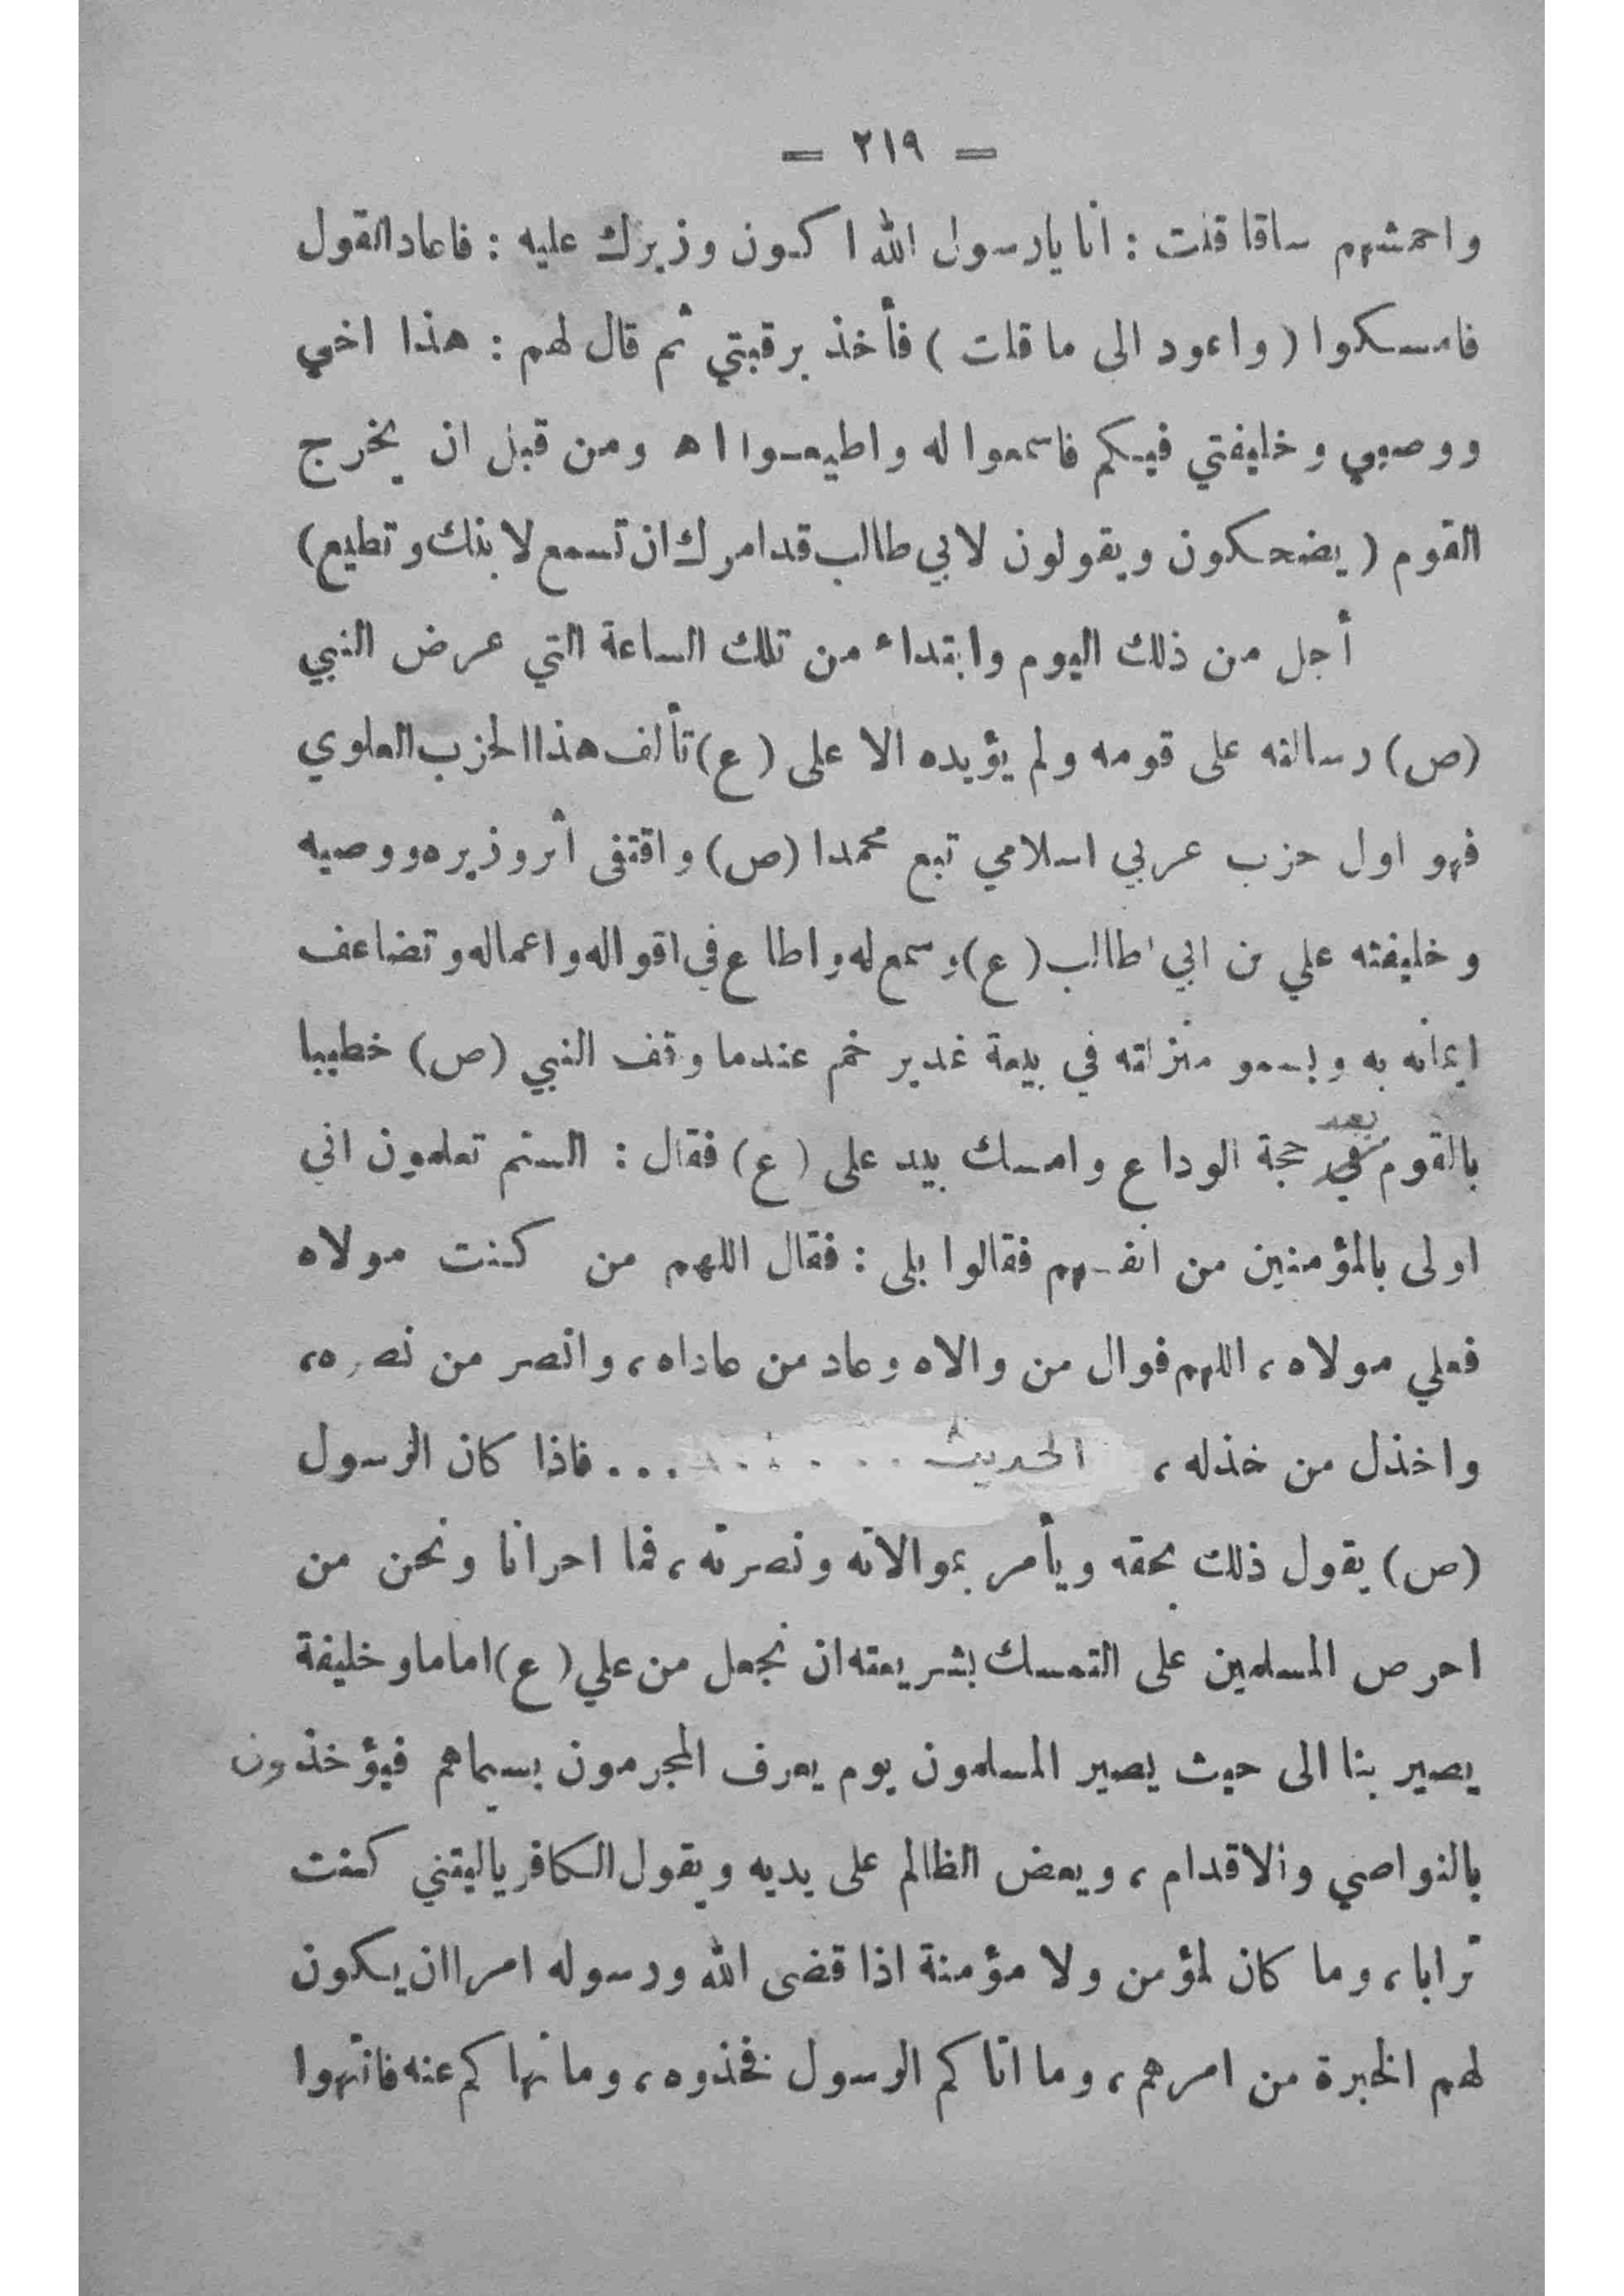 = ٢١٩ =
واحمشهم ساقا قلت : انا يارسول الله اكون وزيرك عليه : فاعاد القول
فامسكوا ( واعود الى ما قلت ) فأخذ برقبتي ثم قال لهم : هذا اخي
ووصيي وخليفتي فيكم فاسمعوا له واطيعوا اه ومن قبل ان يخرج
القوم ( يضحكون ويقولون لابي طالب قد امرك ان تسمع لابنك وتطيع )
أجل من ذلك اليوم وابتداء من تلك الساعة التي عرض النبي
(ص) رسالته على قومه ولم يؤيده الا على ( ع ) تألف هذا الحزب العلوي
فهو اول حزب عربي اسلامي تبع محمدا (ص) واقتفى أثر وزيره ووصيه
وخليفته علي بن ابي طالب ( ع ) وسمع له واطاع في اقواله واعماله وتضاعف
ايمانه به وبسمو منزلته في بيعة غدير خم عندما وقف النبي (ص) خطيبا
بالقوم بعد حجة الوداع وامسك بيد على ( ع ) فقال : الستم تعلمون اني
اولى بالمؤمنين من انفسهم فقالوا بلى : فقال اللهم من كنت مولاه
فعلي مولاه ، اللهم فوال من والاه وعاد من عاداه ، وانصر من نصره ،
واخذل من خذله ، الحديث . . . . . . . . . فاذا كان الرسول
(ص) يقول ذلك بحقه ويأمر بموالاته ونصرته ، فما احرانا ونحن من
احرص المسلمين على التمسك بشريعته ان نجعل من علي ( ع ) اماما وخليفة
يصير بنا الى حيث يصير المسلمون يوم يعرف المجرمون بسيماهم فيؤخذون
بالنواصي والاقدام ، ويعض الظالم على يديه ويقول الكافر ياليتني كنت
ترابا ، وما كان لمؤمن ولا مؤمنة اذا قضى الله ورسوله امرا ان يكون
لهم الخيرة من امرهم ، وما اتاكم الرسول فخذوه ، وما نهاكم عنه فانتهوا